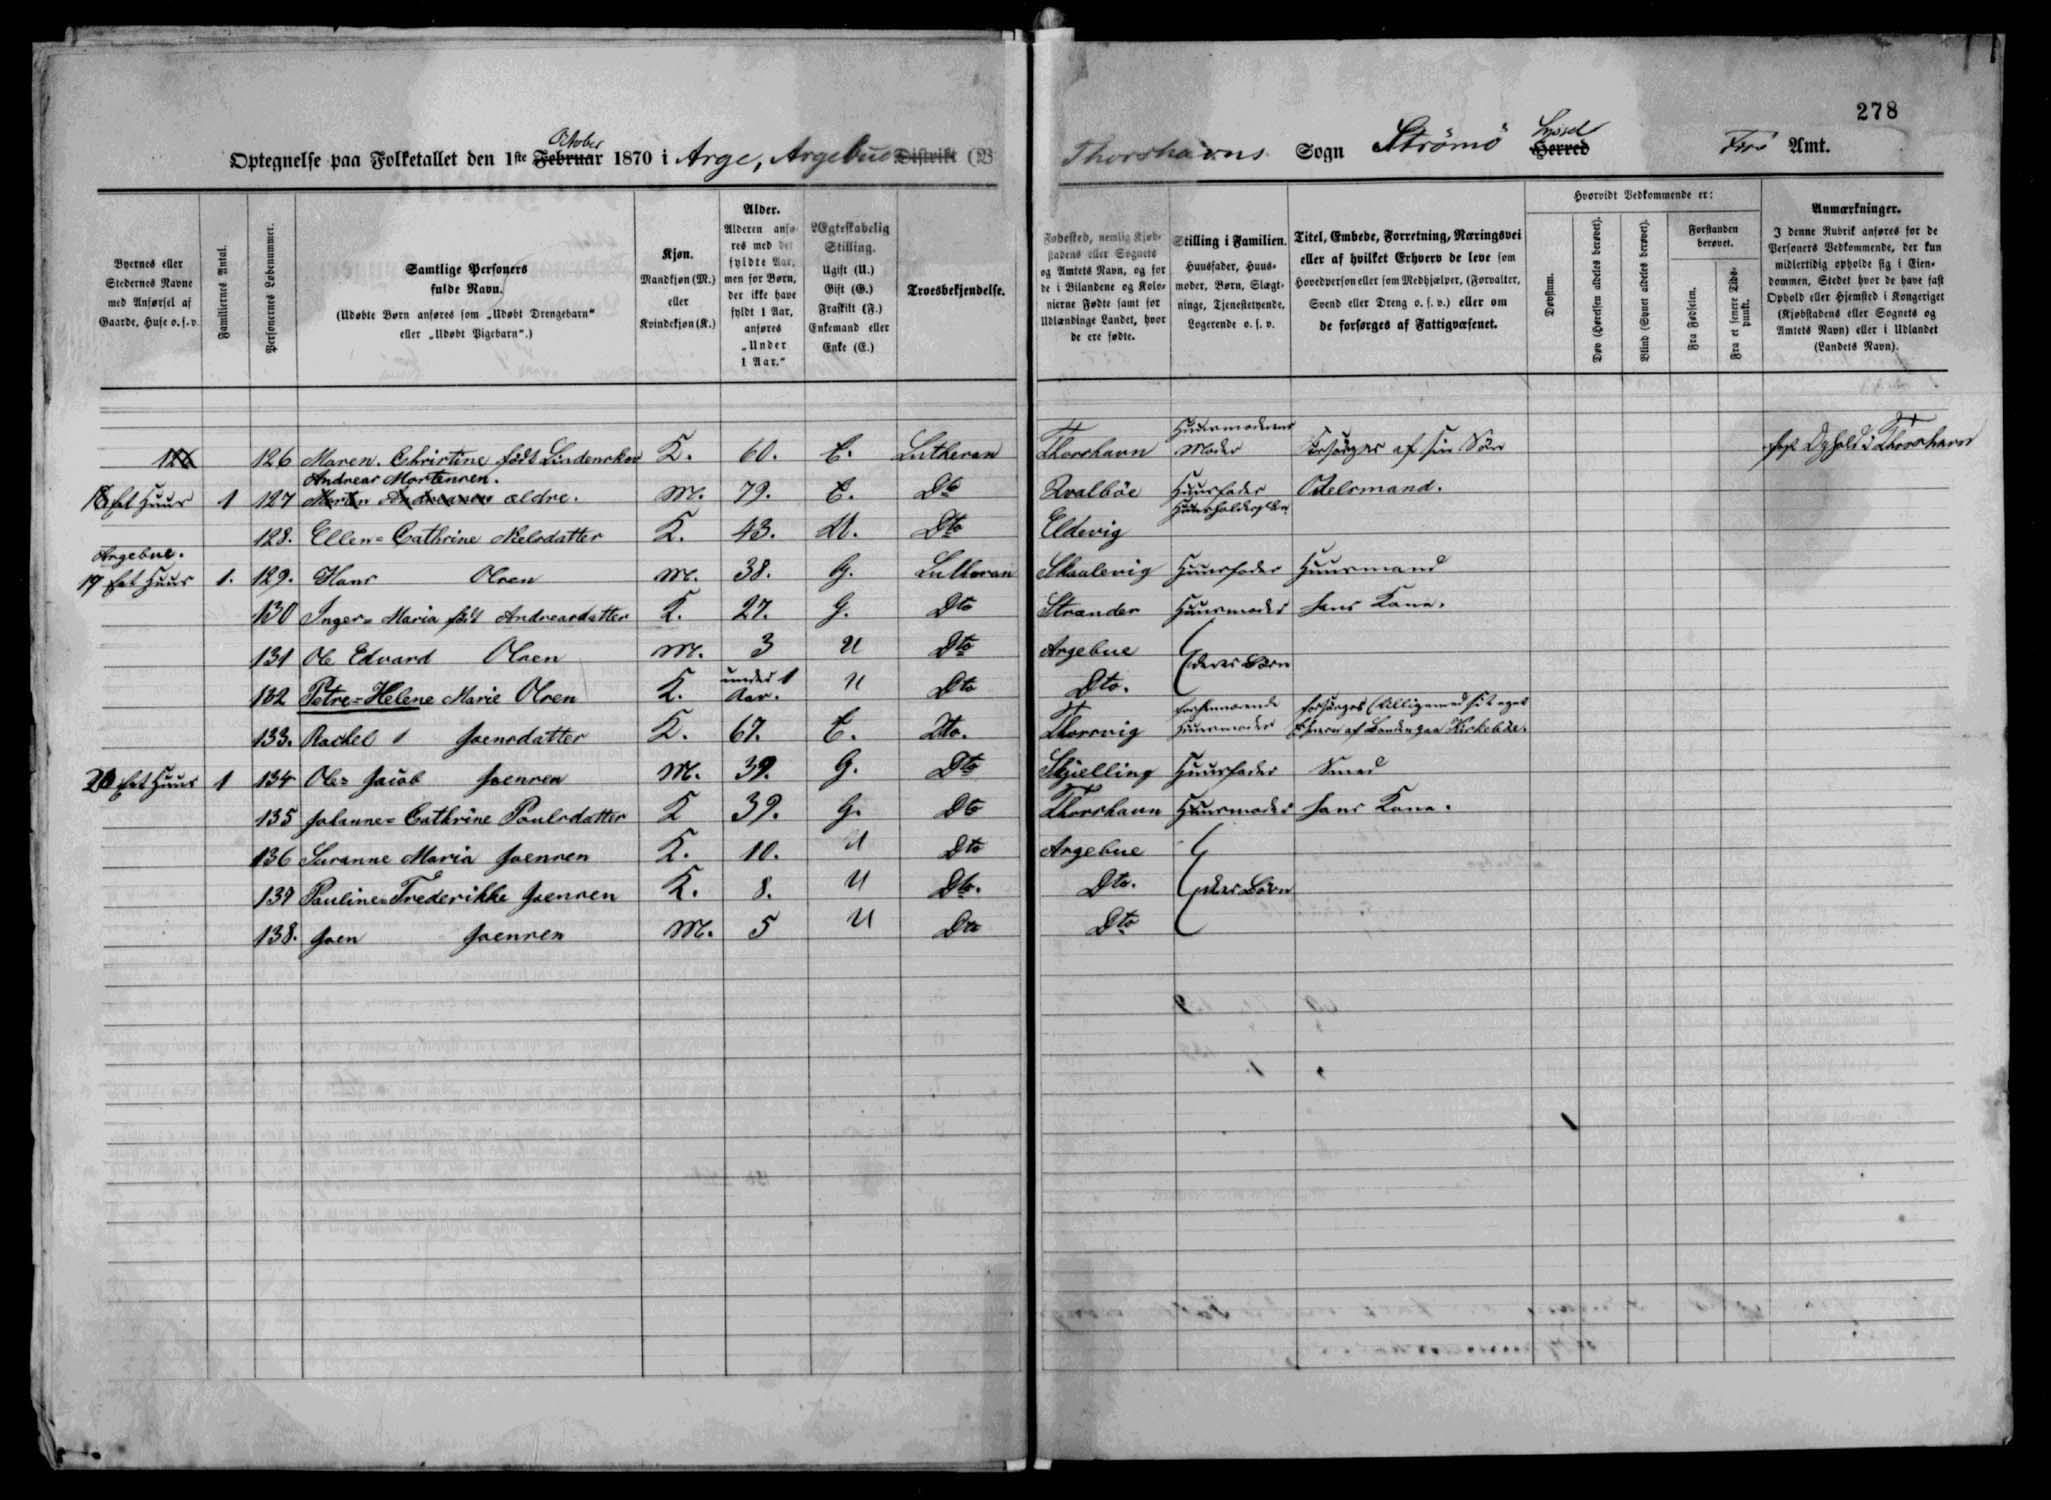 278
October
Optegnelse paa Folketallet den 1ste Februar 1870 i Arge, Argebue Distrikt
Thorshavns Sogn Strömö Syssel Herred Færö Amt.
Byernes eller Stedernes Navne med Anførsel af Gaarde, Huse o. s. v.
Familiernes Antal.
Personernes Løbenummer.
Samtlige Personers fulde Navn.
(Udøbte Børn anføres som „Udøbt Drengebarn" eller „Udøbt Pigebarn".)
Kjøn.
Mandkjøn (M.) eller Kvindekjøn (K.)
Alder.
Alderen anføres med det fyldte Aar, men for Børn, der ikke have fyldt 1 Aar, anføres „Under 1 Aar."
Ægteskabelig Stilling.
Ugift (U.) Gift (G.) Fraskilt (F.) Enkemand eller Enke (E.)
Troesbekjendelse.
Fødested, nemlig Kjøbstadens eller Sognets og Amtets Navn, og for de i Bilandene og Kolonierne Fødte samt for Udlændinge Landet, hvor de ere fødte.
Stilling i Familien.
Huusfader, Huusmoder, Børn, Slægtninge, Tjenestetyende, Logerende o. s. v.
Titel, Embede, Forretning, Næringsvei eller af hvilket Erhverv de leve som Hovedperson eller som Medhjælper, (Forvalter, Svend eller Dreng o. s. v.) eller om de forsørges af Fattigvæsenet.
Hvorvidt Vedkommende er:
Døvstum.
Døv (Hørelsen aldeles berøvet).
Blind (Synet aldeles berøvet).
Forstanden berøvet.
Fra Fødselen.
Fra et senere Tidspunkt.
Anmærkninger.
I denne Rubrik anføres for de Personers Vedkommende, der kun midlertidig opholde sig i Eiendommen, Stedet hvor de have fast Ophold eller Hjemsted i Kongeriget (Kjøbstadens eller Sognets og Amtets Navn) eller i Udlandet (Landets Navn).
126 126 Maren. Christine födt Lindenskov K. 60. E. Lutheran Thorshavn Huusmoderens Moder Forsörges af sin Sön fast Ophold i Thorshavn
Andreas Mortensen.
18 Et Huus 1 127 Morten Andreasen ældre. M. 79. E. Dto Qvalböe Huusfader Odelsmand.
128. Ellen=Cathrine Nielsdatter K. 43. U. Dto Eldevig
Argebue.
19 Et Huus 1. 129. Hans Olsen M. 38. G. Lutheran Skaalevig Huusfader Huusmand
130 Inger=Maria född Andreasdatter K. 27. G. Dto Strænder Huusmoder hans Kone.
131 Ole Edvard Olsen M. 3 U Dto Argebue
deres Börn
132 Petre=Helene Marie Olsen K. under 1 Aar. U Dto Dto.
133. Rachel Joensdatter K. 67. E. Dto. Thorsvig Huusmoder
20 Et Huus 1 134 Ole=Jacob Joensen M. 39. G. Dto Skjelling Huusfader Smed
135 Johanne=Cathrine Poulsdatter K 39. G. Dto Thorshavn Huusmoder hans Kone.
136 Susanne Maria Joensen K. 10. U Dto Argebue
137 Pauline=Frederikke Joensen K. 8. U Dto. Dto. deres Börn
138. Joen Joensen M. 5 U Dto Dto